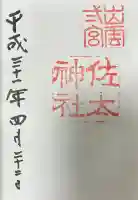 出雲
弍宮
佐太
神社
平成三十一年四月二十二日